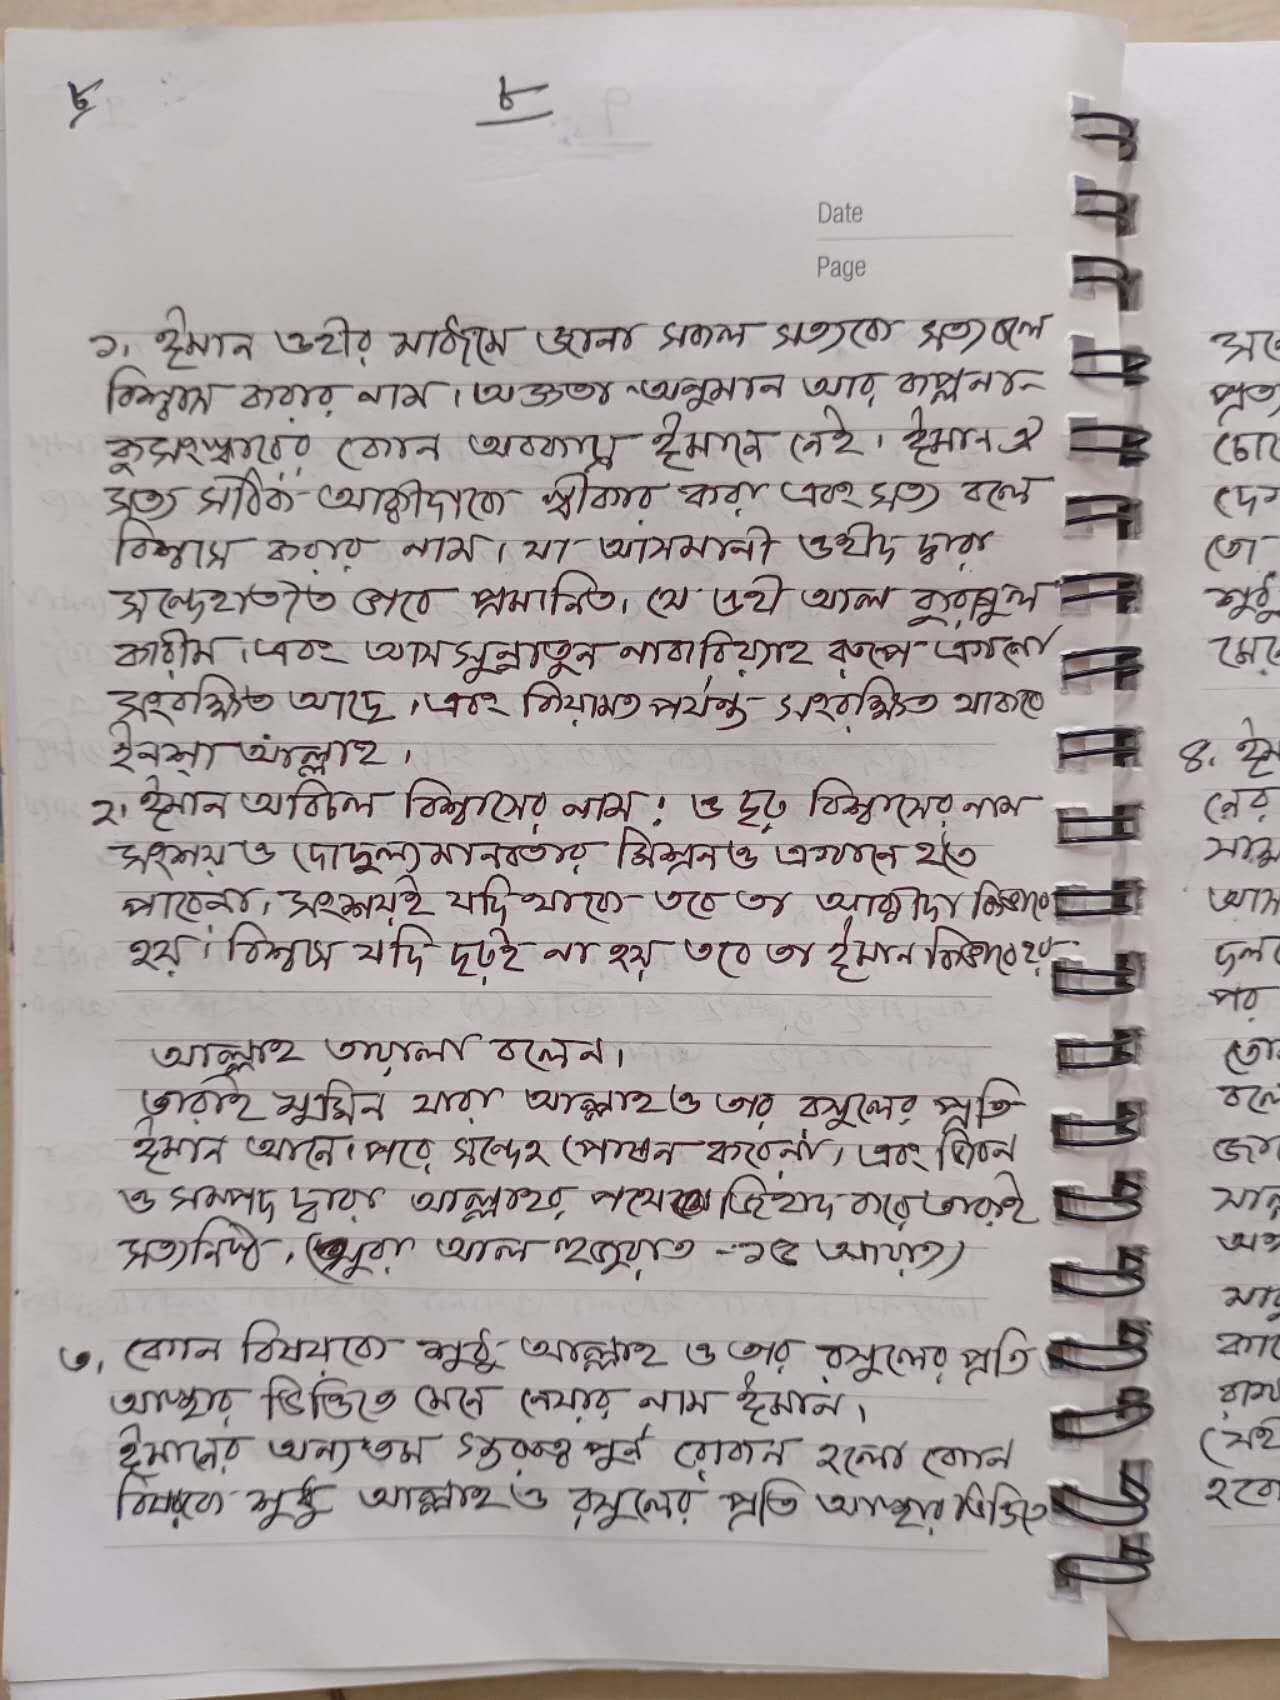 ৮ ৮
Date
Page
১, ঈমান ওহীর মাধ্যমে জানা সকল সত্যকে সত্য বলে
বিশ্বাস করার নাম। অজ্ঞতা-অনুমান আর কল্পনা-
কুসংস্কারের কোন অবকাশ ঈমানে নেই। ঈমান ঐ
সত্য সঠিক আক্বীদাকে স্বীকার করা এবং সত্য বলে
বিশ্বাস করার নাম। যা আসমানী ওহীদ দ্বারা
সন্দেহাতীত ভাবে প্রমানিত। যে ওহী আল কুরআনুল
কারীম। এবং আসসুন্নাতুন নাবাবিয়্যাহ রূপে এখনো
সংরক্ষিত আছে। এবং কিয়ামত পর্যন্ত সংরক্ষিত থাকবে
ইনশা আল্লাহ।
২, ঈমান অবিচল বিশ্বাসের নাম। ও দৃঢ় বিশ্বাসের নাম
সংশয় ও দোদুল্যমানবতার মিশ্রনও এখানে হতে
পারেনা। সংশয়ই যদি থাকে তবে তা আক্বীদা কিভাবে
হয়। বিশ্বাস যদি দৃঢ়ই না হয় তবে তা ঈমান কিভাবে হয়
আল্লাহ তায়ালা বলেন।
তারাই মুমিন যারা আল্লাহ ও তার রসুলের প্রতি
ঈমান আনে। পরে সন্দেহ পোষন করেনা। এবং জিবন
ও সম্পদ দ্বারা আল্লাহর পথে জিহাদ করে তারাই
সত্যনিষ্ঠ। (সুরা আল হুজুরাত -১৫ আয়াত)
৩, কোন বিষয়কে শুধু আল্লাহ ও তার রসুলের প্রতি
আস্থার ভিত্তিতে মেনে নেয়ার নাম ঈমান।
ঈমানের অন্যতম গুরুত্ব পূর্ন রোকন হলো কোন
বিষয়কে শুধু আল্লাহ ও রসুলের প্রতি আস্থার ভিত্তিতে
৪, ঈম